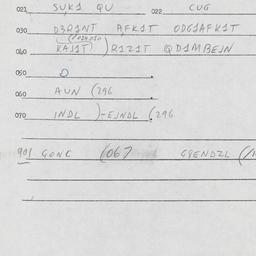 021 SUK1 QU 022 CUG
030 D3R1NT AFK1T ODG1AFK1T
040 KAJ1T) R1Z1T QD1MBEJN
050 O
060 AUN (296
070 INDL )-EJNDL (296
901 GONC (067 G9ENDZL